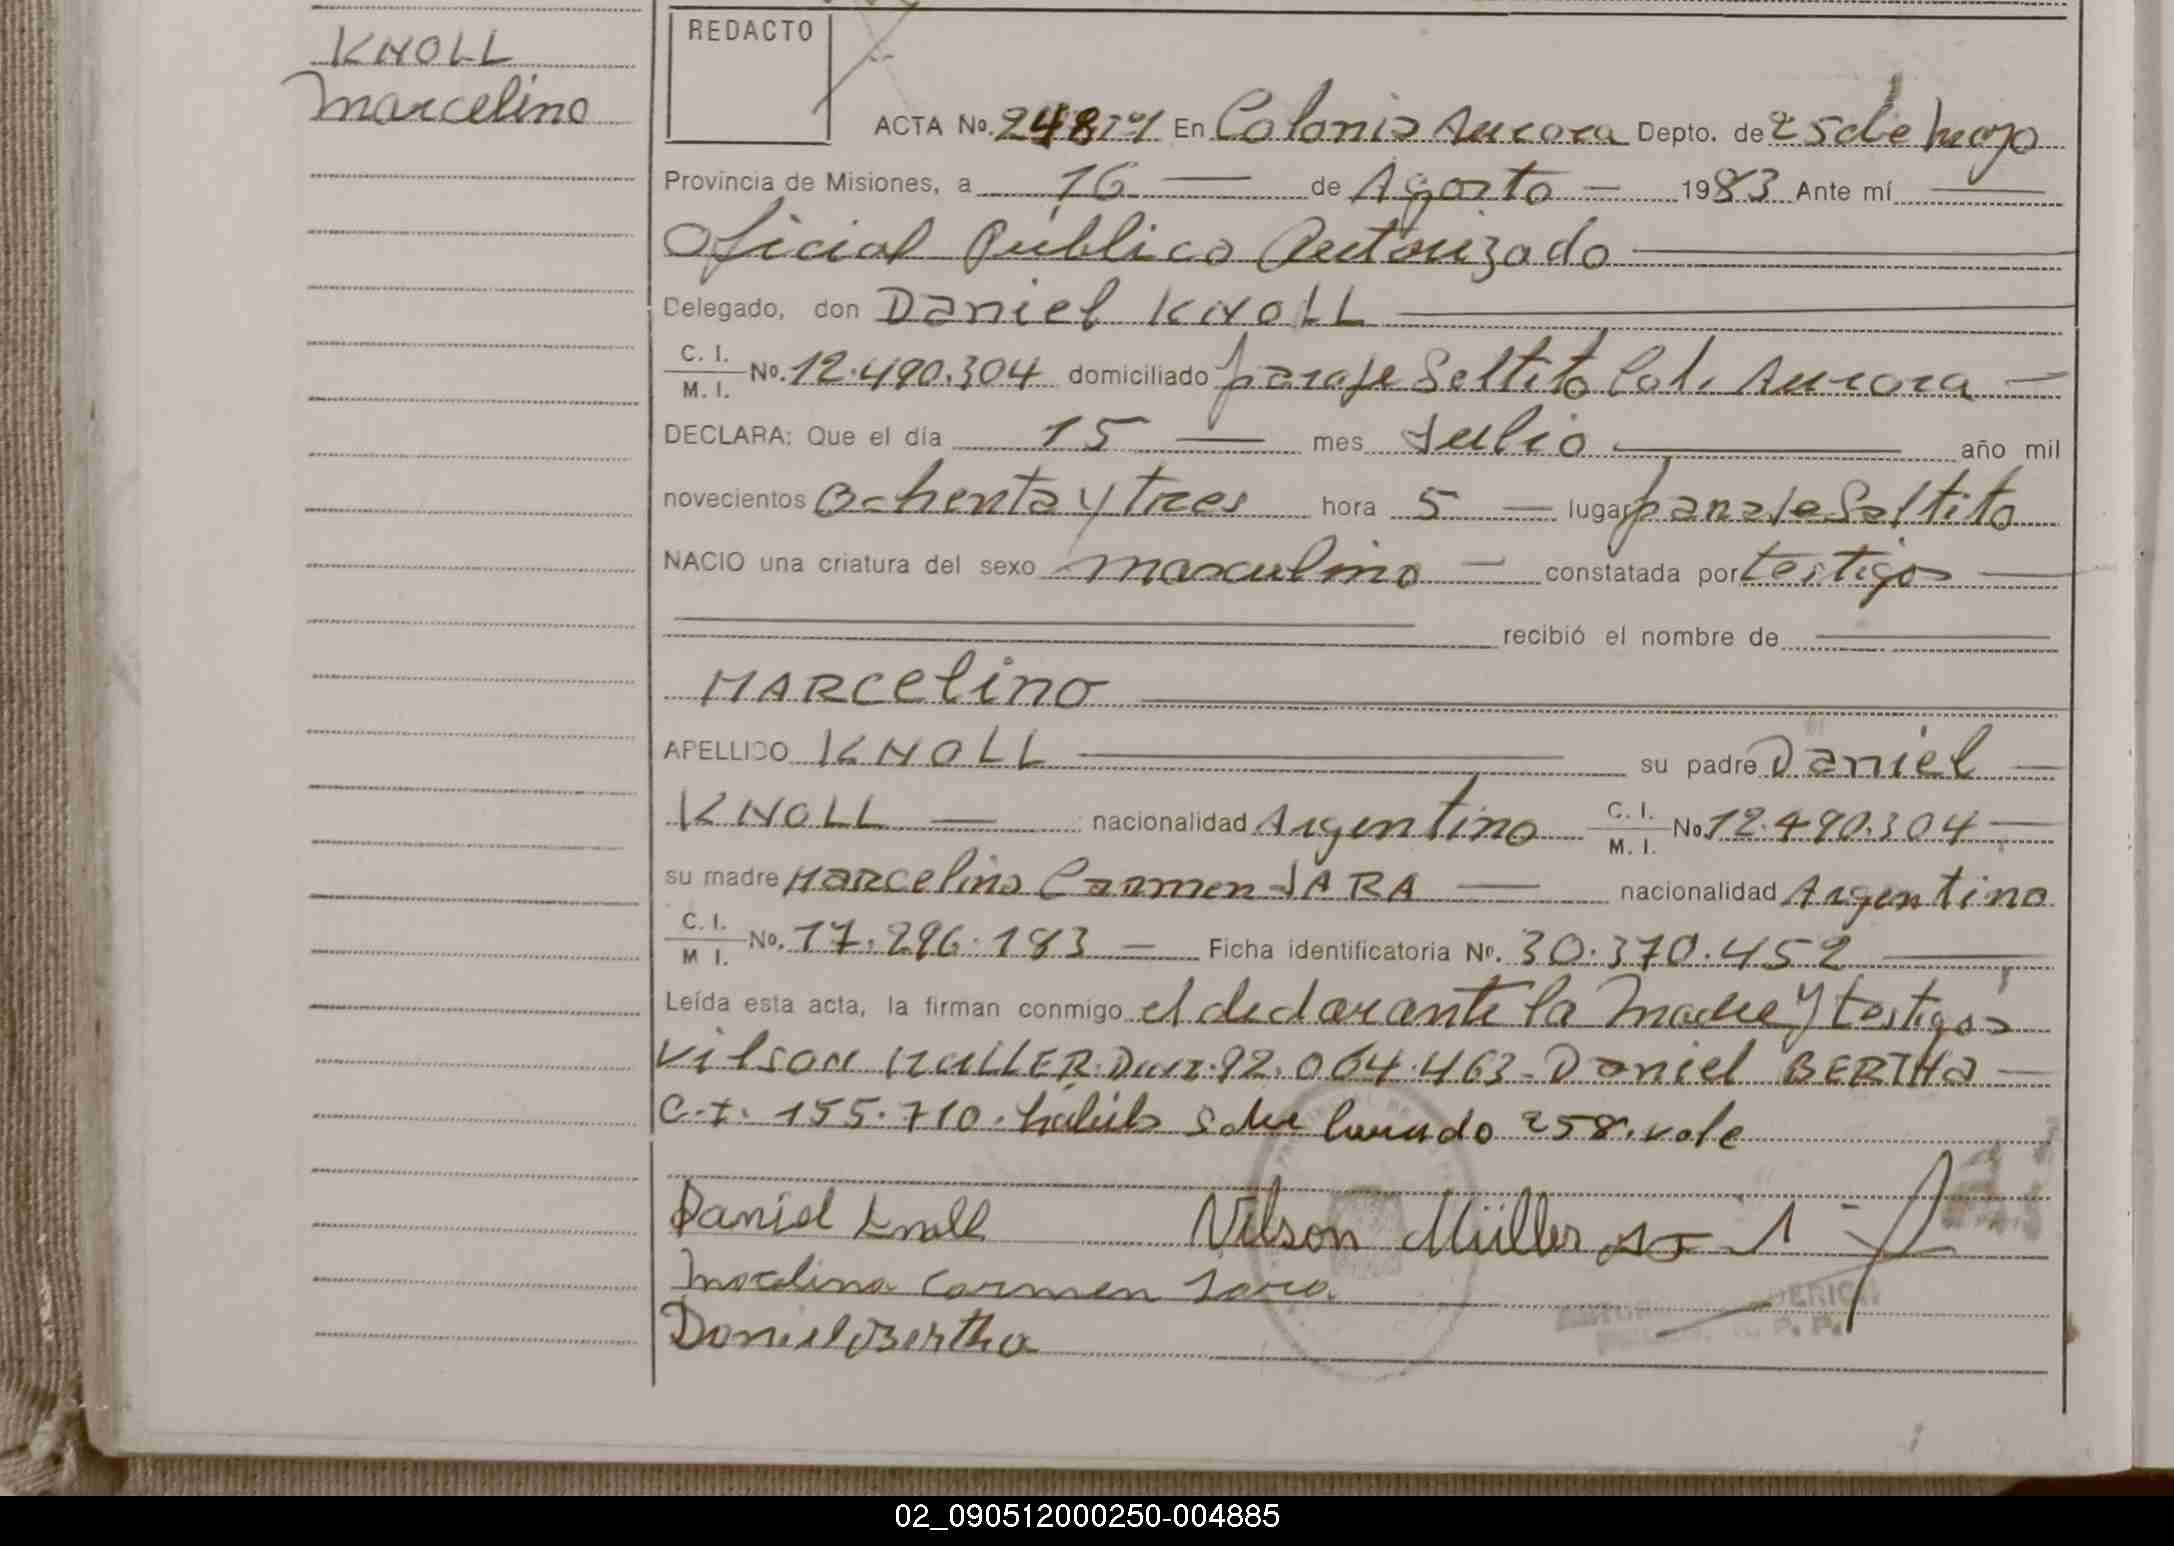 KNOLL
Marcelino
REDACTO
ACTA No. 248 En Colonia Aurora Depto. de 25 de Mayo
Provincia de Misiones, a 16 de Agosto 1983 Ante mí
Oficial Público Autorizado
Delegado, don Daniel KNOLL
C. I.
M. I. No. 12.490.304 domiciliado paraje Saltito Col. Aurora
DECLARA: Que el día 15 mes Julio año mil
novecientos Ochenta y tres hora 5 lugar paraje Saltito
NACIO una criatura del sexo masculino constatada por testigos
recibió el nombre de
MARcelino
APELLIDO KNOLL su padre Daniel
KNOLL nacionalidad Argentino C. I. M. I. No. 12.490.304
su madre Marcelina Carmen JARA nacionalidad Argentina
C. I.
M I. No. 17.296.183 Ficha identificatoria No. 30.370.452
Leída esta acta, la firman conmigo el declarante la Madre y testigos
Vilson MULLER 92.064.463 - Daniel BERTHA
C.I. 155.710. 258. vale
Daniel Knoll Vilson Müller
Marcelina Carmen Jara
Daniel Bertha
02_090512000250-004885